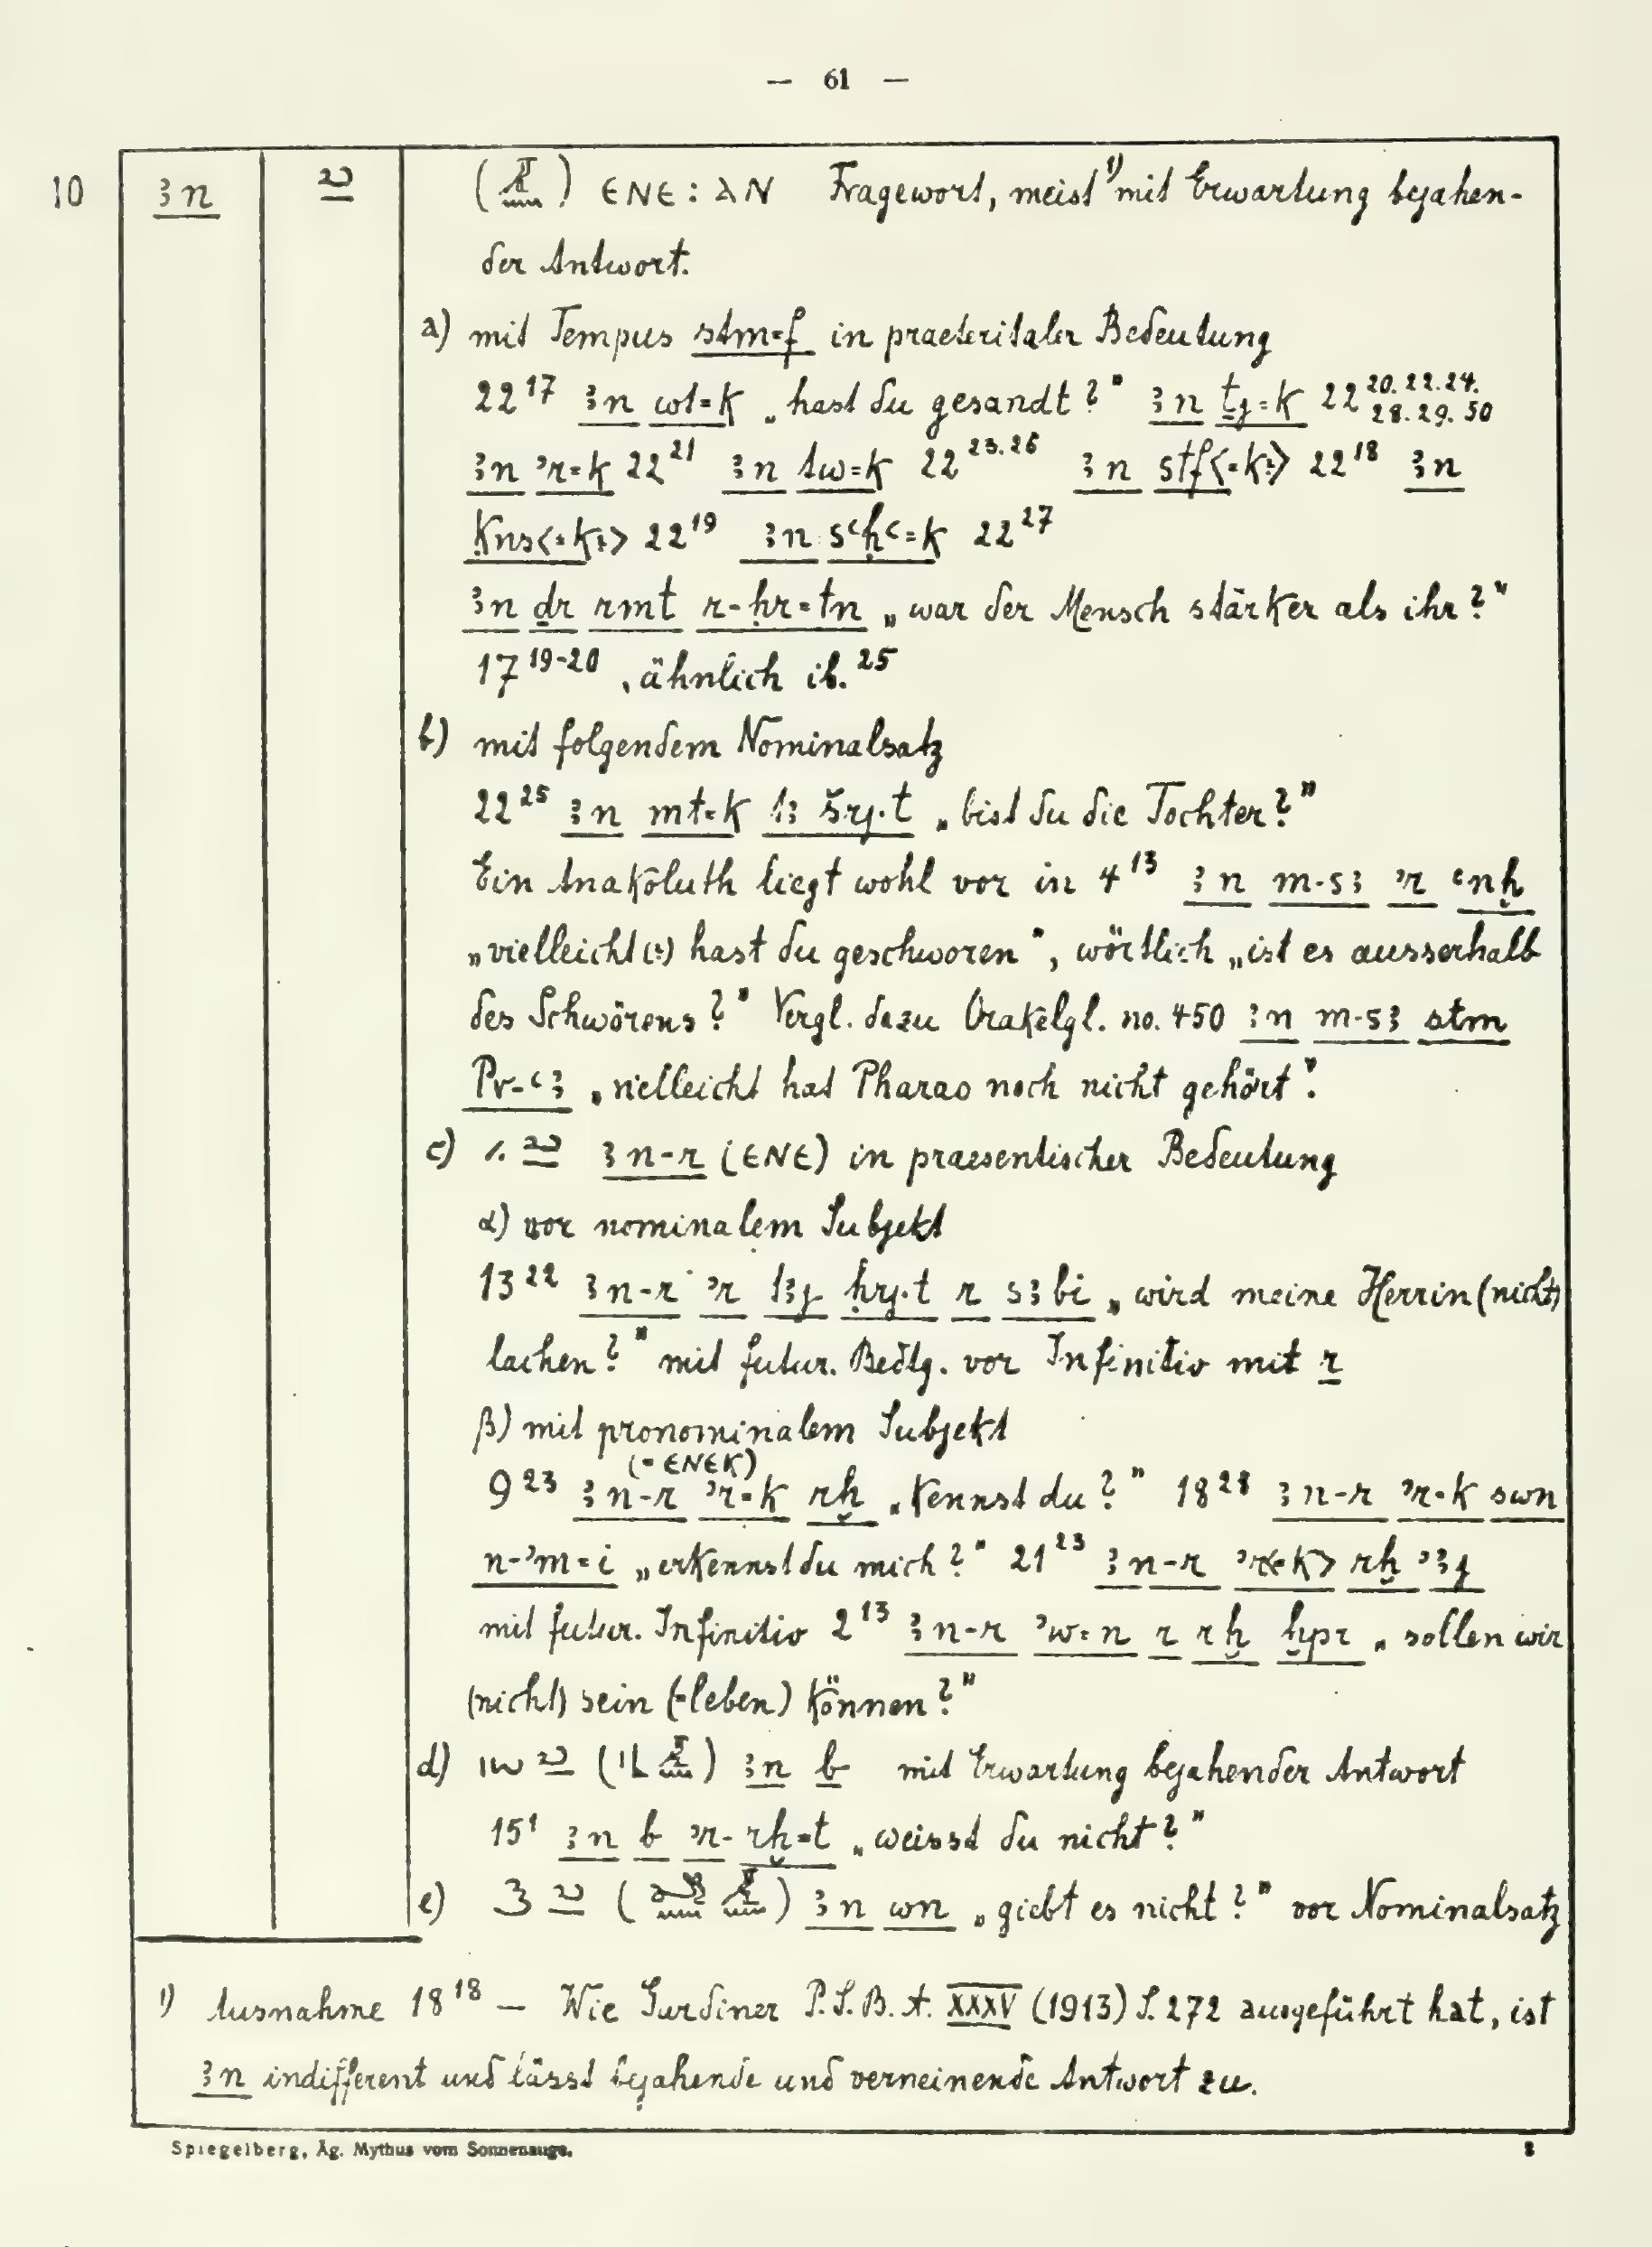 — 61 —
10 ꜣn (  ) ⲉⲛⲉ : ⲁⲛ Fragewort, meist ¹) mit Erwartung bejahen-
der Antwort.
a) mit Tempus stm=f in praeteritaler Bedeutung
22¹⁷ ꜣn wt=k „hast du gesandt?" ꜣn ṯj=k 22 ²⁰·²²·²⁴· ²⁸·²⁹·⁵⁰
ꜣn ʾr=k 22²¹ ꜣn tw=k 22²³·²⁶ ꜣn stf<=k?> 22¹⁸ ꜣn
ḳns<=k?> 22¹⁹ ꜣn sʿḥʿ=k 22²⁷
ꜣn dr rmt r-ḥr=tn „war der Mensch stärker als ihr?"
17¹⁹⁻²⁰, ähnlich ib.²⁵
b) mit folgendem Nominalsatz
22²⁵ ꜣn mt=k tꜣ šrj·t „bist du die Tochter?"
Ein Anakoluth liegt wohl vor in 4¹³ ꜣn m-sꜣ ʾr ʿnḫ
„vielleicht (?) hast du geschworen", wörtlich „ist es ausserhalb
des Schwörens?" Vergl. dazu Orakelgl. no. 450 ꜣn m-sꜣ stm
Pr-ʿꜣ „vielleicht hat Pharao noch nicht gehört".
c) ꜣn-r (ⲉⲛⲉ) in praesentischer Bedeutung
α) vor nominalem Subjekt
13²² ꜣn-r ʾr tꜣj ḥrj·t r sꜣbi „wird meine Herrin (nicht)
lachen?" mit futur. Bedtg. vor Infinitiv mit r
β) mit pronominalem Subjekt
(= ⲉⲛⲉⲕ)
9²³ ꜣn-r ʾr=k rḫ „kennst du?" 18²⁸ ꜣn-r ʾr=k swn
n-ʾm=i „erkennst du mich?" 21²³ ꜣn-r ʾr<=k> rḫ ʾꜣj
mit futur. Infinitiv 2¹³ ꜣn-r ʾw=n r rḫ ḫpr „sollen wir
(nicht) sein (=leben) können?"
d) (  ) ꜣn b mit Erwartung bejahender Antwort
15¹ ꜣn b ʾr-rḫ=t „weisst du nicht?"
e) (  ) ꜣn wn „giebt es nicht?" vor Nominalsatz
¹) Ausnahme 18¹⁸ — Wie Gardiner P.S.B.A. XXXV (1913) S. 272 ausgeführt hat, ist
ꜣn indifferent und lässt bejahende und verneinende Antwort zu.
Spiegelberg, Äg. Mythus vom Sonnenauge. 8